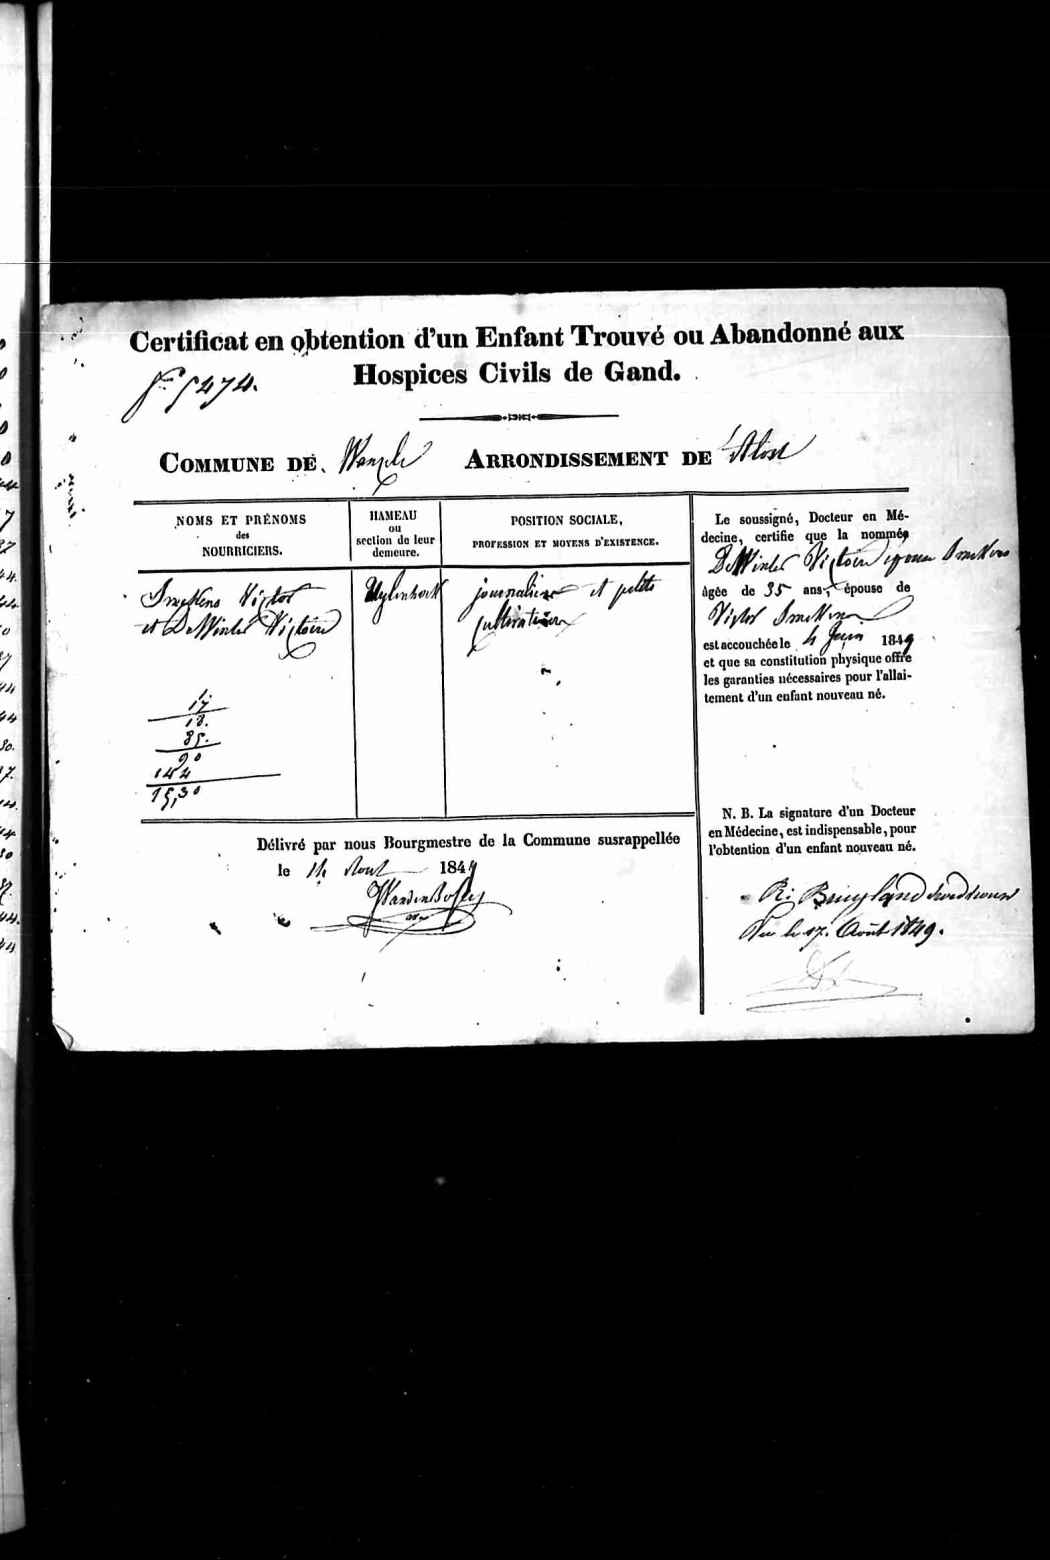 Certificat en obtention d'un Enfant Trouvé ou Abandonné aux
Hospices Civils de Gand.
5474.
COMMUNE DE ARRONDISSEMENT DE Alost
NOMS ET PRÉNOMS
des
NOURRICIERS.
HAMEAU
ou
section de leur
demeure.
POSITION SOCIALE,
PROFESSION ET MOYENS D'EXISTENCE.
Victor
et De Winter Victoire
journalier et petits
cultivateurs
17
18.
85.
90
144
15,30
Délivré par nous Bourgmestre de la Commune susrappellée
le 14 Aout 1849
Le soussigné, Docteur en Mé-
decine, certifie que la nommée
De Winter Victoire
âgée de 35 ans, épouse de
Victor
est accouchée le 4 Juin 1849
et que sa constitution physique offre
les garanties nécessaires pour l'allai-
tement d'un enfant nouveau né.
N. B. La signature d'un Docteur
en Médecine, est indispensable, pour
l'obtention d'un enfant nouveau né.
Vu le 17. Août 1849.